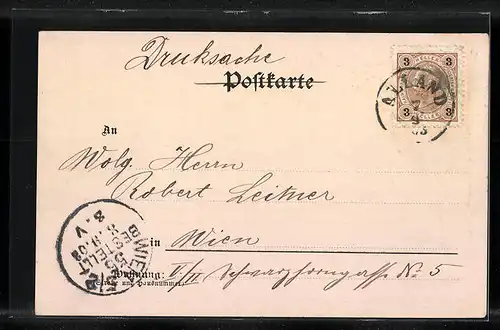 Drucksache
Postkarte
3 3
ALLAND
3 3
An
Wolg. Herrn
Robert Leitner
in Wien
WIEN
BESTELLT
8. V.
Wohnung: V/II Schwarzhorngasse No. 5
Straße und Hausnummer